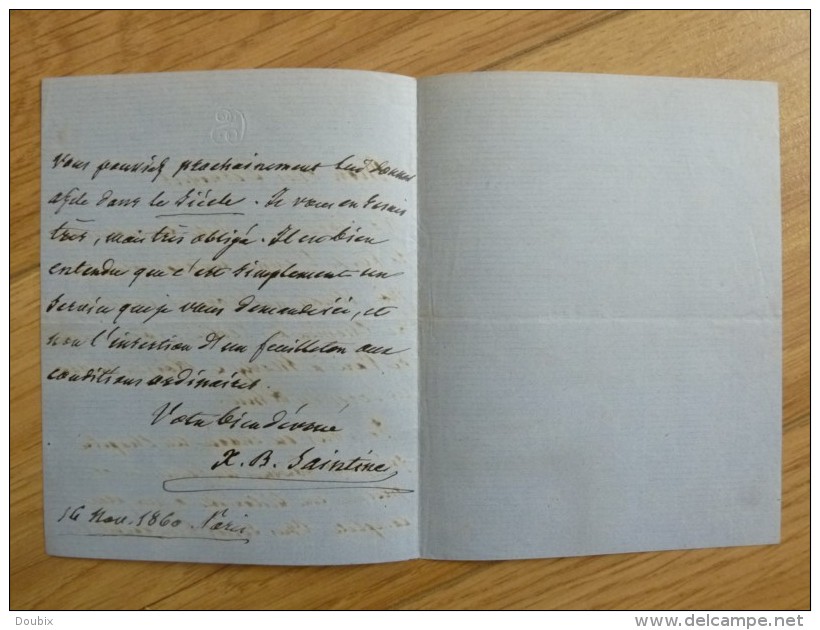 vous pouviez prochainement lui donner
asyle dans le Siècle. Je vous en serais
très, mais très obligé. Il est bien
entendu que c'est simplement un
service que je vous demande ici, et
non l'insertion d'un feuilleton aux
conditions ordinaires.
Votre bien dévoué
X. B. Saintine
16 Nov. 1860. Paris
Doubix
www.delcampe.net